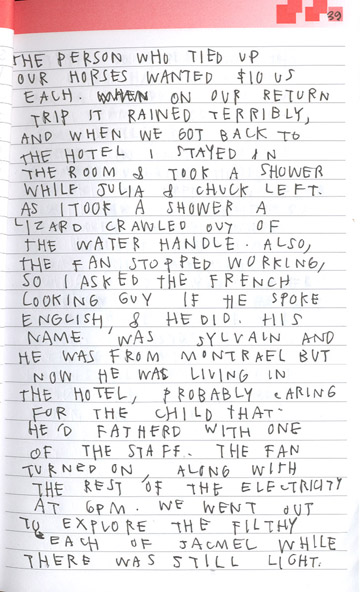 39
THE PERSON WHO TIED UP
OUR HORSES WANTED $10 US
EACH. WHEN ON OUR RETURN
TRIP IT RAINED TERRIBLY,
AND WHEN WE GOT BACK TO
THE HOTEL I STAYED IN
THE ROOM & TOOK A SHOWER
WHILE JULIA & CHUCK LEFT.
AS I TOOK A SHOWER A
LIZARD CRAWLED OUT OF
THE WATER HANDLE. ALSO,
THE FAN STOPPED WORKING,
SO I ASKED THE FRENCH
LOOKING GUY IF HE SPOKE
ENGLISH, & HE DID. HIS
NAME WAS SYLVAIN AND
HE WAS FROM MONTRAEL BUT
NOW HE WAS LIVING IN
THE HOTEL, PROBABLY CARING
FOR THE CHILD THAT
HE'D FATHERD WITH ONE
OF THE STAFF. THE FAN
TURNED ON, ALONG WITH
THE REST OF THE ELECTRICITY
AT 6PM. WE WENT OUT
TO EXPLORE THE FILTHY
BEACH OF JACMEL WHILE
THERE WAS STILL LIGHT.